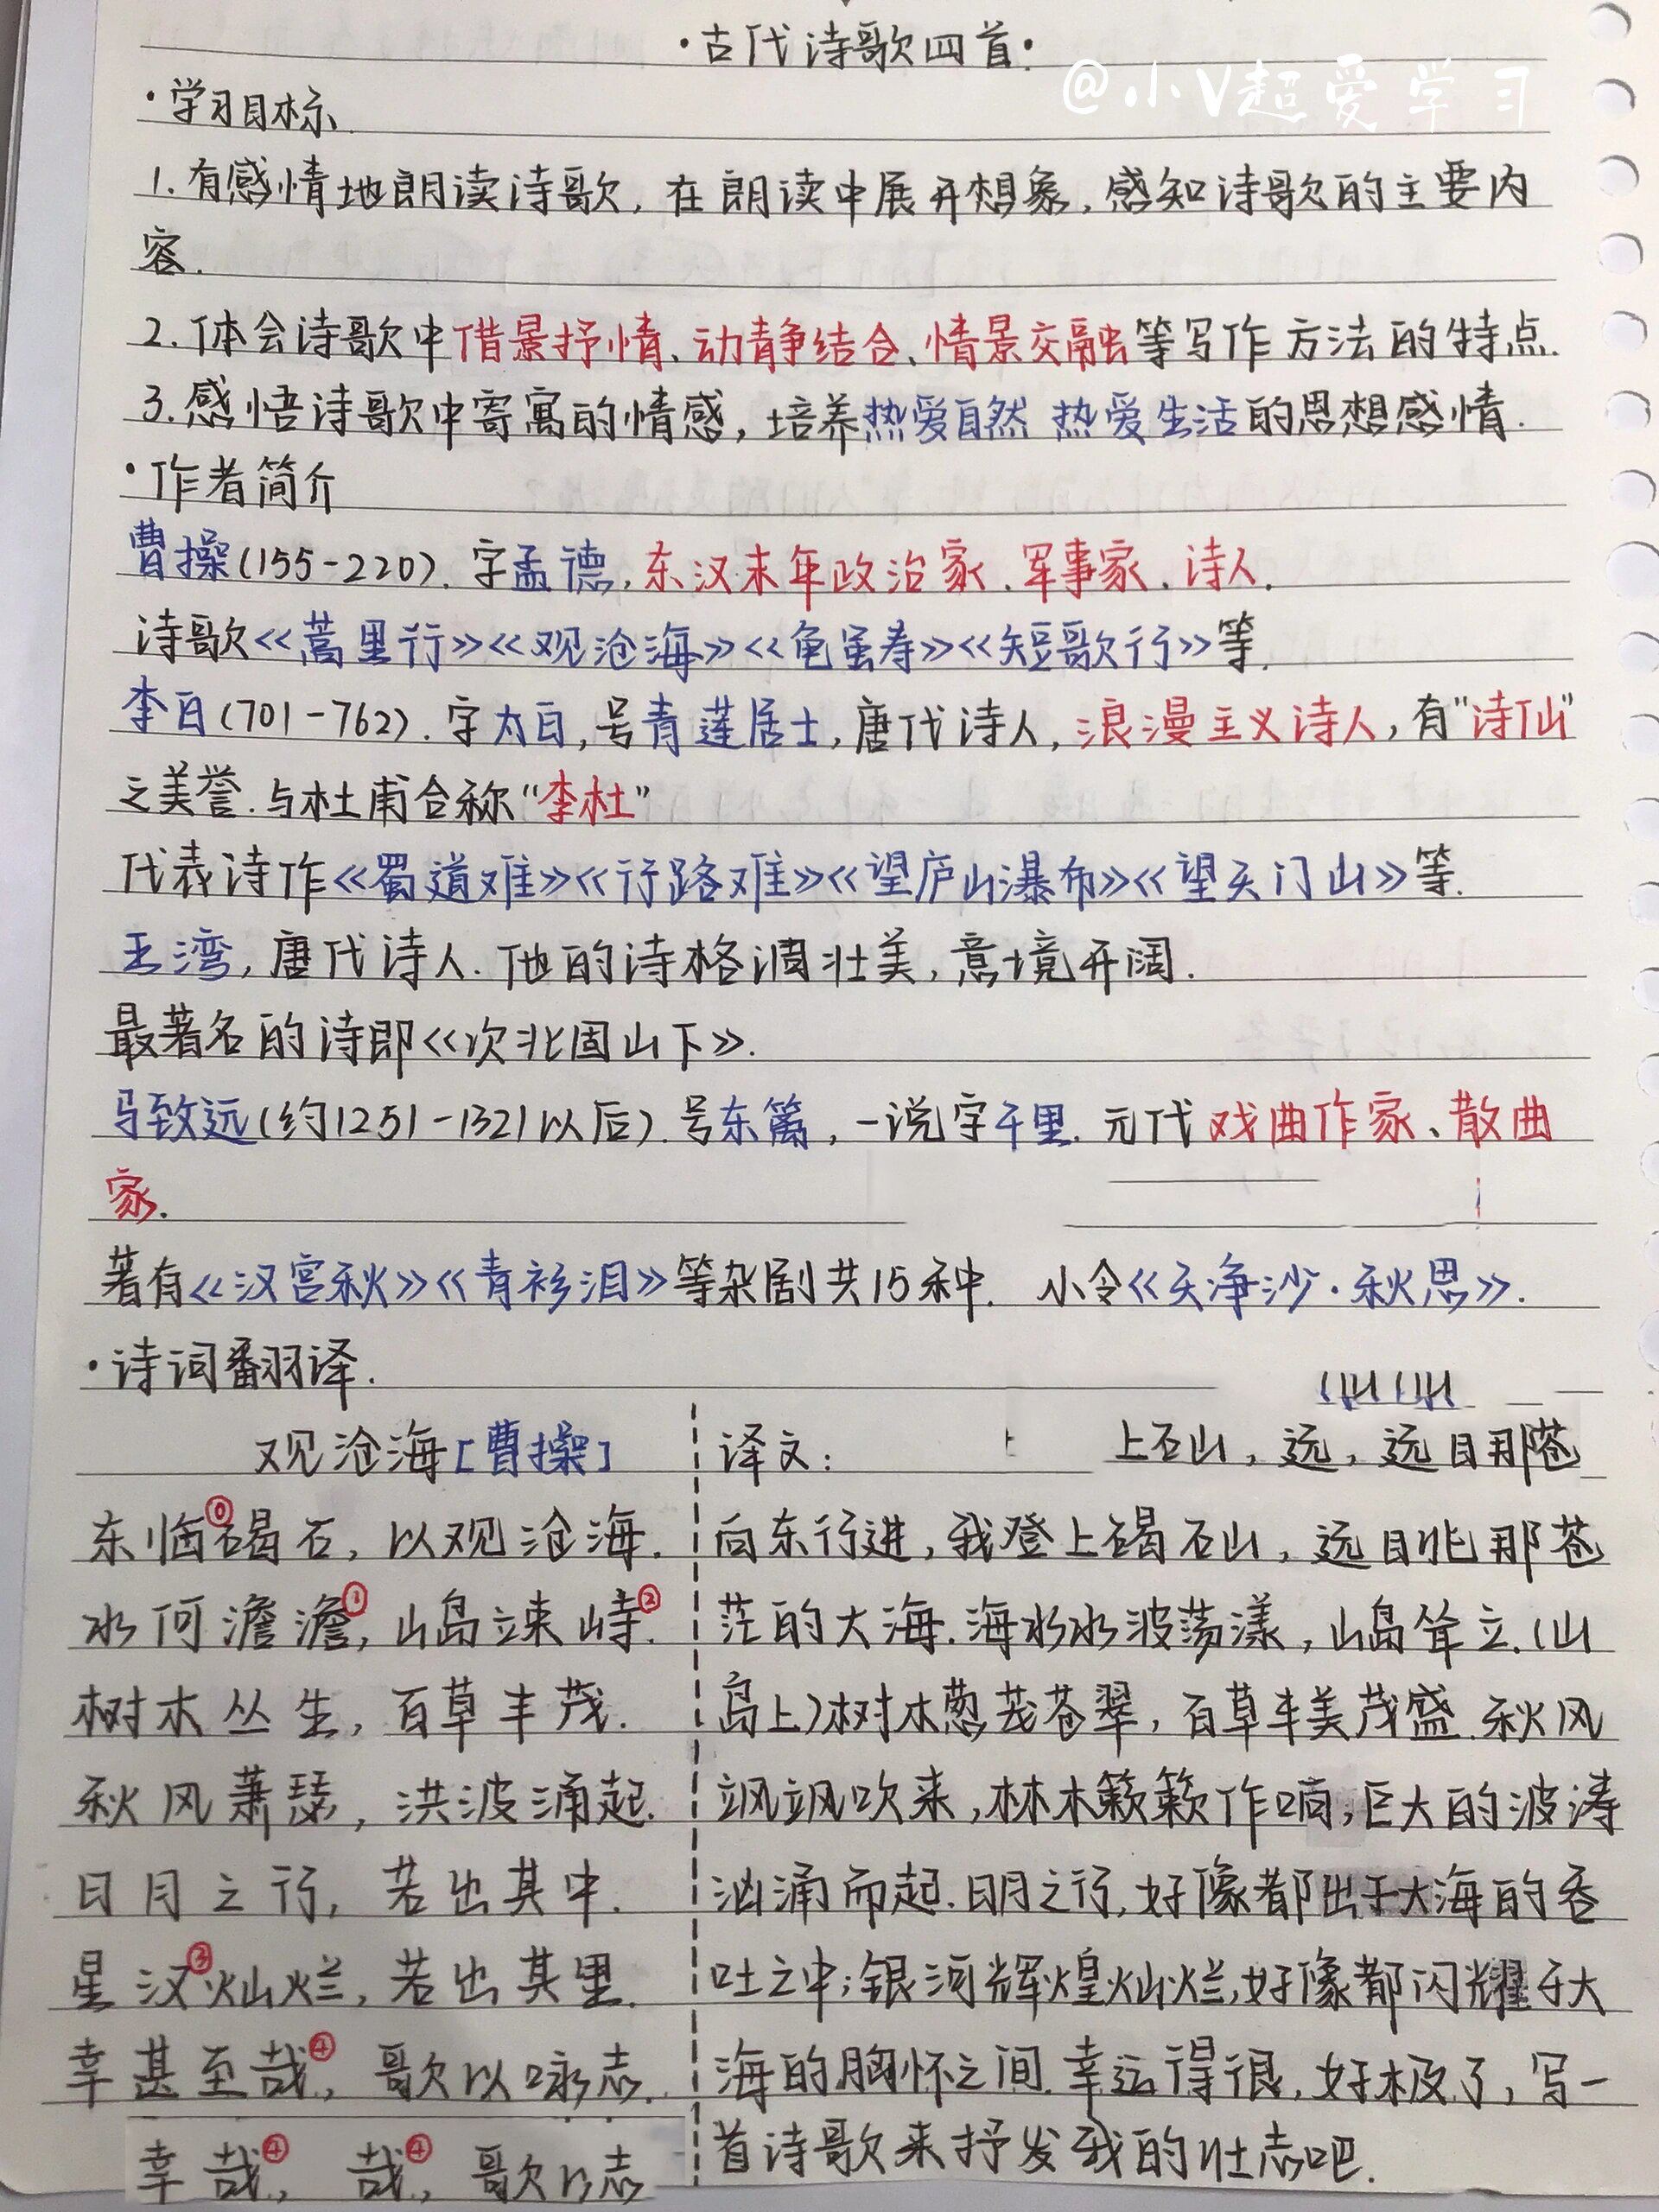 ·古代诗歌四首·
@小V超爱学习
·学习目标
1.有感情地朗读诗歌，在朗读中展开想象，感知诗歌的主要内
容.
2.体会诗歌中借景抒情、动静结合、情景交融等写作方法的特点.
3.感悟诗歌中寄寓的情感，培养热爱自然 热爱生活的思想感情.
·作者简介
曹操(155-220).字孟德,东汉末年政治家.军事家.诗人.
诗歌《蒿里行》《观沧海》《龟虽寿》《短歌行》等.
李白(701-762).字太白,号青莲居士,唐代诗人,浪漫主义诗人,有"诗仙"
之美誉.与杜甫合称"李杜"
代表诗作《蜀道难》《行路难》《望庐山瀑布》《望天门山》等.
王湾,唐代诗人.他的诗格调壮美,意境开阔.
最著名的诗即《次北固山下》.
马致远(约1251-1321以后).号东篱,一说字千里.元代戏曲作家、散曲
家.
著有《汉宫秋》《青衫泪》等杂剧共15种. 小令《天净沙·秋思》.
·诗词翻译.
观沧海[曹操]
东临⓪碣石,以观沧海.
水何澹澹①,山岛竦峙②.
树木丛生,百草丰茂.
秋风萧瑟,洪波涌起.
日月之行,若出其中.
星汉③灿烂,若出其里.
幸甚至哉④,歌以咏志.
幸哉④, 哉④,歌以志
译文: 上石山,远,远目那苍
向东行进,我登上碣石山,远眺那苍
茫的大海.海水水波荡漾,山岛耸立.(山
岛上)树木葱茏苍翠,百草丰美茂盛.秋风
飒飒吹来,林木簌簌作响,巨大的波涛
汹涌而起.日月之行,好像都出于大海的吞
吐之中;银河辉煌灿烂,好像都闪耀于大
海的胸怀之间.幸运得很,好极了,写一
首诗歌来抒发我的壮志吧.